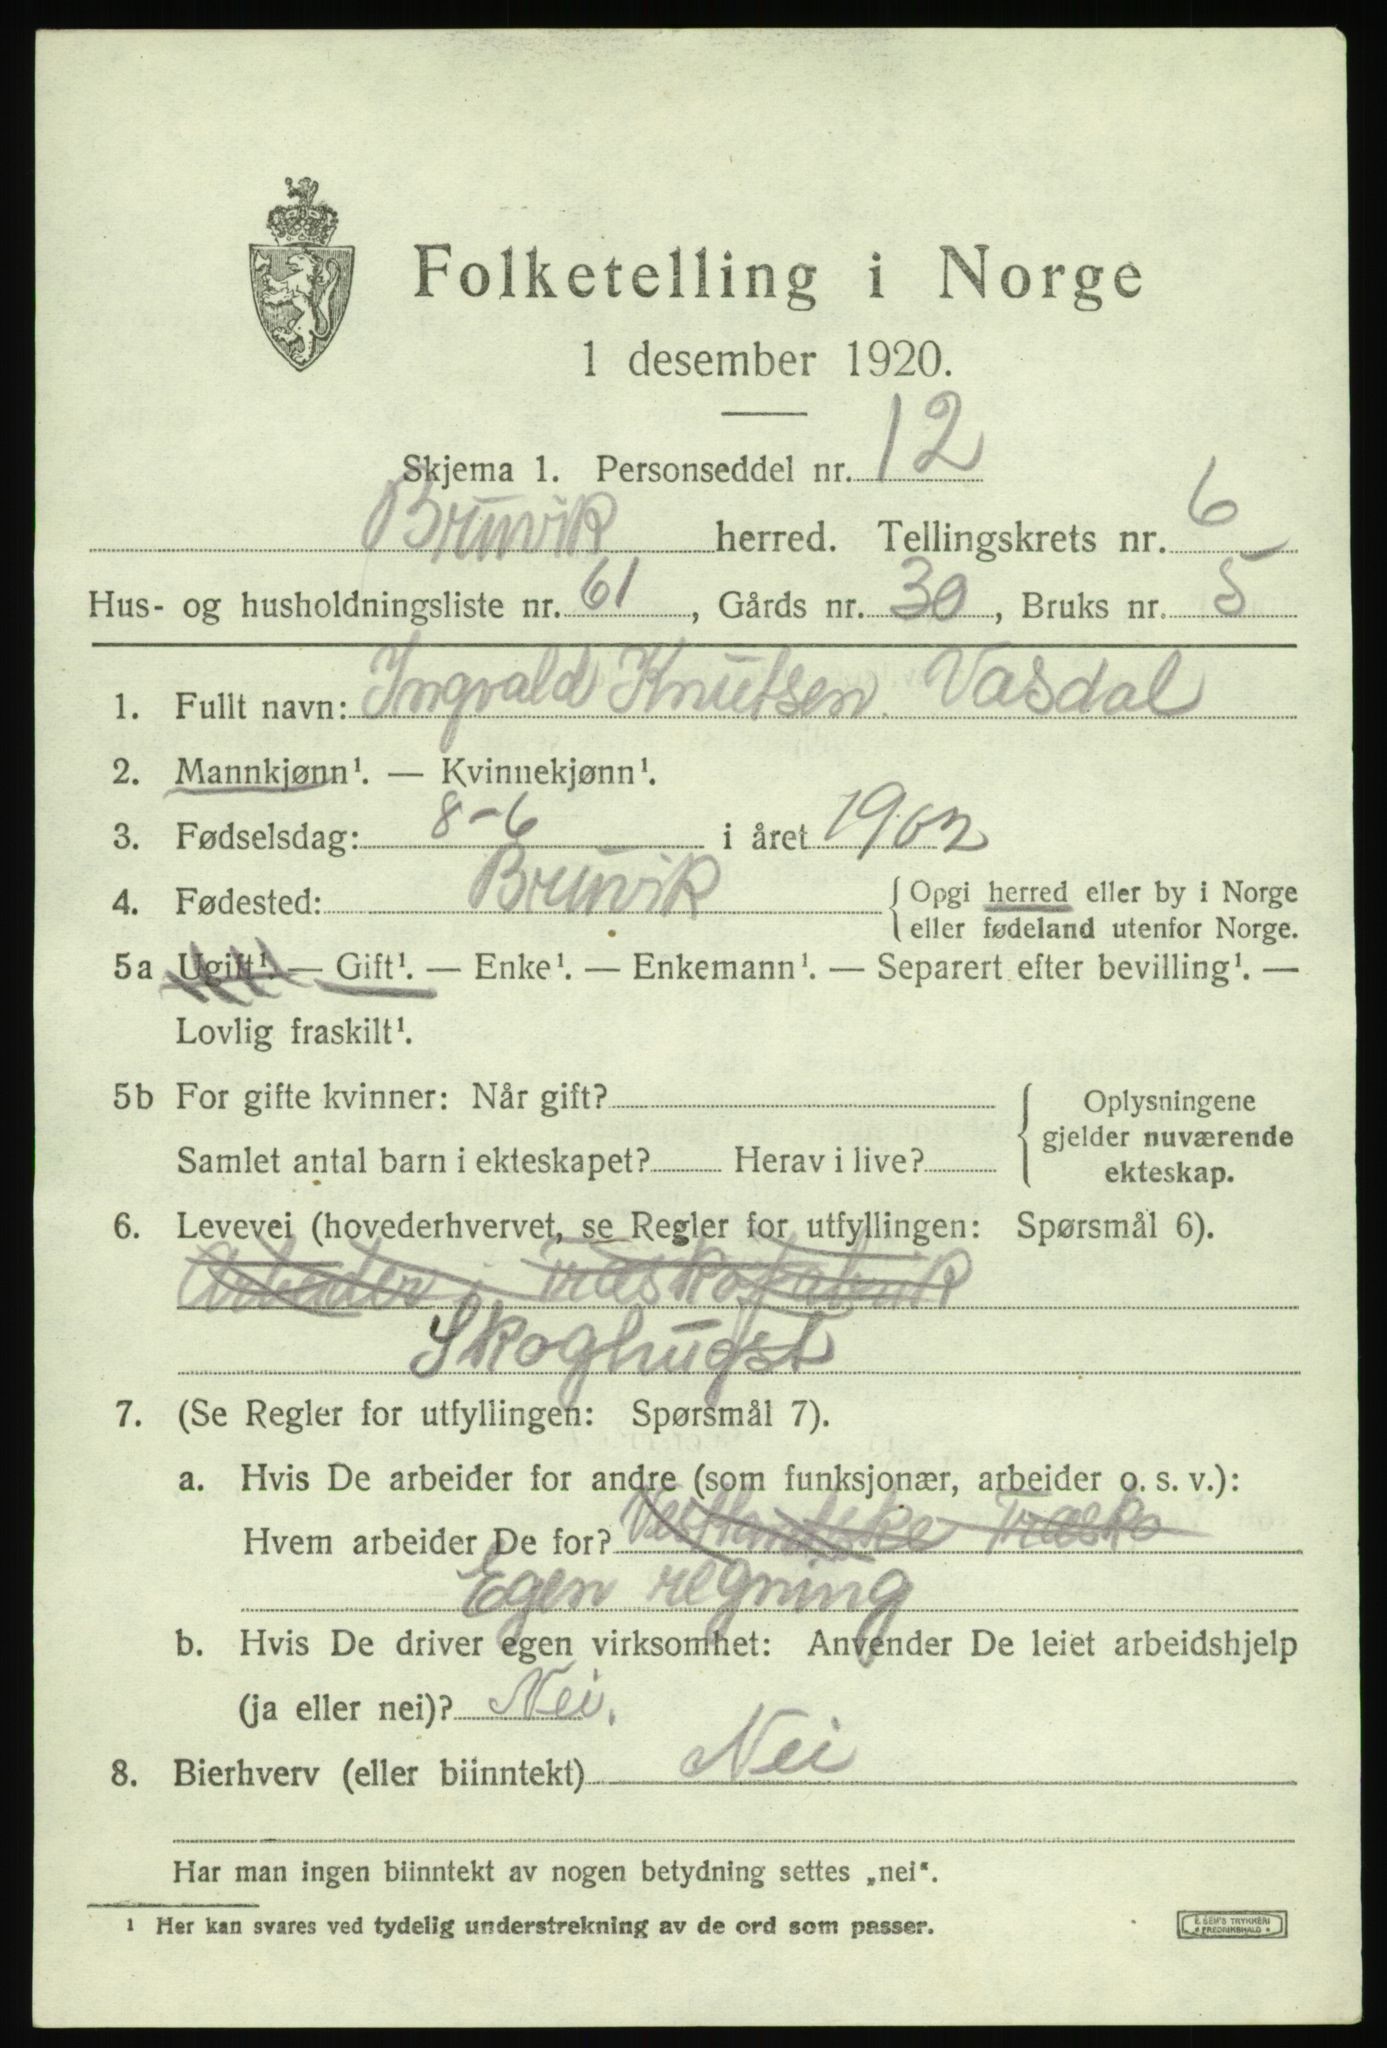 Folketelling i Norge
1 desember 1920.
Skjema 1. Personseddel nr. 12
Bruvik herred. Tellingskrets nr. 6
Hus- og husholdningsliste nr. 61, Gårds nr. 30, Bruks nr. 5
1. Fullt navn: Ingvald Knutsen Vasdal
2. Mannkjønn¹. — Kvinnekjønn¹.
3. Fødselsdag: 8-6 i året 1902
4. Fødested: Bruvik { Opgi herred eller by i Norge
eller fødeland utenfor Norge.
5a Ugift¹. — Gift¹. — Enke¹. — Enkemann¹. — Separert efter bevilling¹. —
Lovlig fraskilt¹.
5b For gifte kvinner: Når gift? { Oplysningene
gjelder nuværende
Samlet antal barn i ekteskapet? Herav i live? ekteskap.
6. Levevei (hovederhvervet, se Regler for utfyllingen: Spørsmål 6).
Arbeider Træskofabrik
Skoghugst
7. (Se Regler for utfyllingen: Spørsmål 7).
a. Hvis De arbeider for andre (som funksjonær, arbeider o. s. v.):
Hvem arbeider De for? Vestlandske Træsko
Egen regning
b. Hvis De driver egen virksomhet: Anvender De leiet arbeidshjelp
(ja eller nei)? Nei.
8. Bierhverv (eller biinntekt) Nei
Har man ingen biinntekt av nogen betydning settes „nei“.
¹ Her kan svares ved tydelig understrekning av de ord som passer.
E. SEM'S TRYKKERI
FREDRIKSHALD